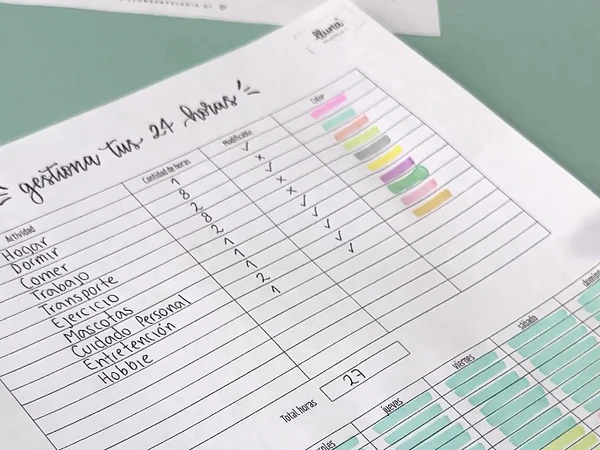 gestiona tus 24 horas
Actividad Cantidad de horas Modificable Color
Hogar 1
Dormir 8
Comer 2
Trabajo 8
Transporte 2
Ejercicio 1
Mascotas 1
Cuidado Personal 1
Entretención 2
Hobbie 1
Total horas 27
jueves viernes sábado